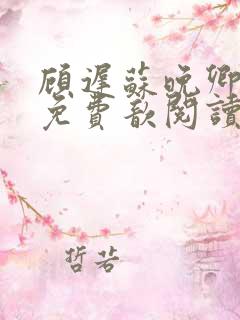 顾遲蘇晚卿
免費歆閱讀
哲若